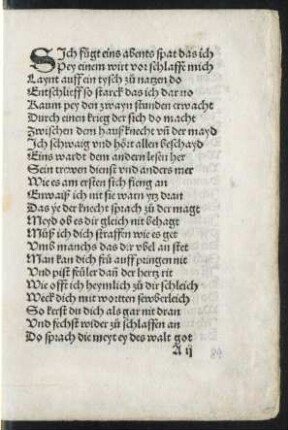 SIch fügt eins abents spat das ich
Pey einem wirt vor schlaffe mich
Laynt auff ein tysch zů natzen do
Entschlieff so starck das ich dar no
Kaum pey den zwayn stunden erwacht
Durch einen krieg der sich do macht
Zwischen dem hauß knecht vñ der mayd
Ich schwaig vnd hört allen beschayd
Eins wardt dem andern lesen her
Sein trewen dienst vnd anders mer
Wie es am ersten sich fieng an
Enwaiß ich nit sie warn yn dran
Das ye der knecht sprach zů der magt
Meyd ob es dir gleich nit behagt
Můß ich dich straffen wie es get
Vmb manchs das dir vbel an stet
Man kan dich frü auff pringen nit
Vnd pist feüler dañ der hertz rit
Wie offt ich heymlich zů dir schleich
Weck dich mit wortten sewberleich
So kerst du dich als gar nit dran
Vnd fechst wider zů schlaffen an
Do sprach die meyt ey des walt got
A ij